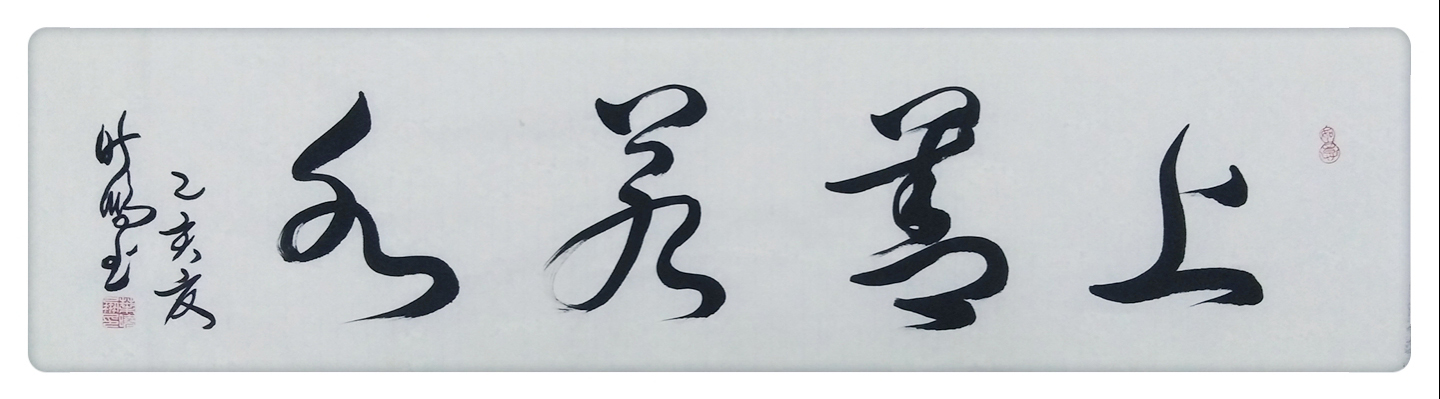 上善若水
乙亥夏
书